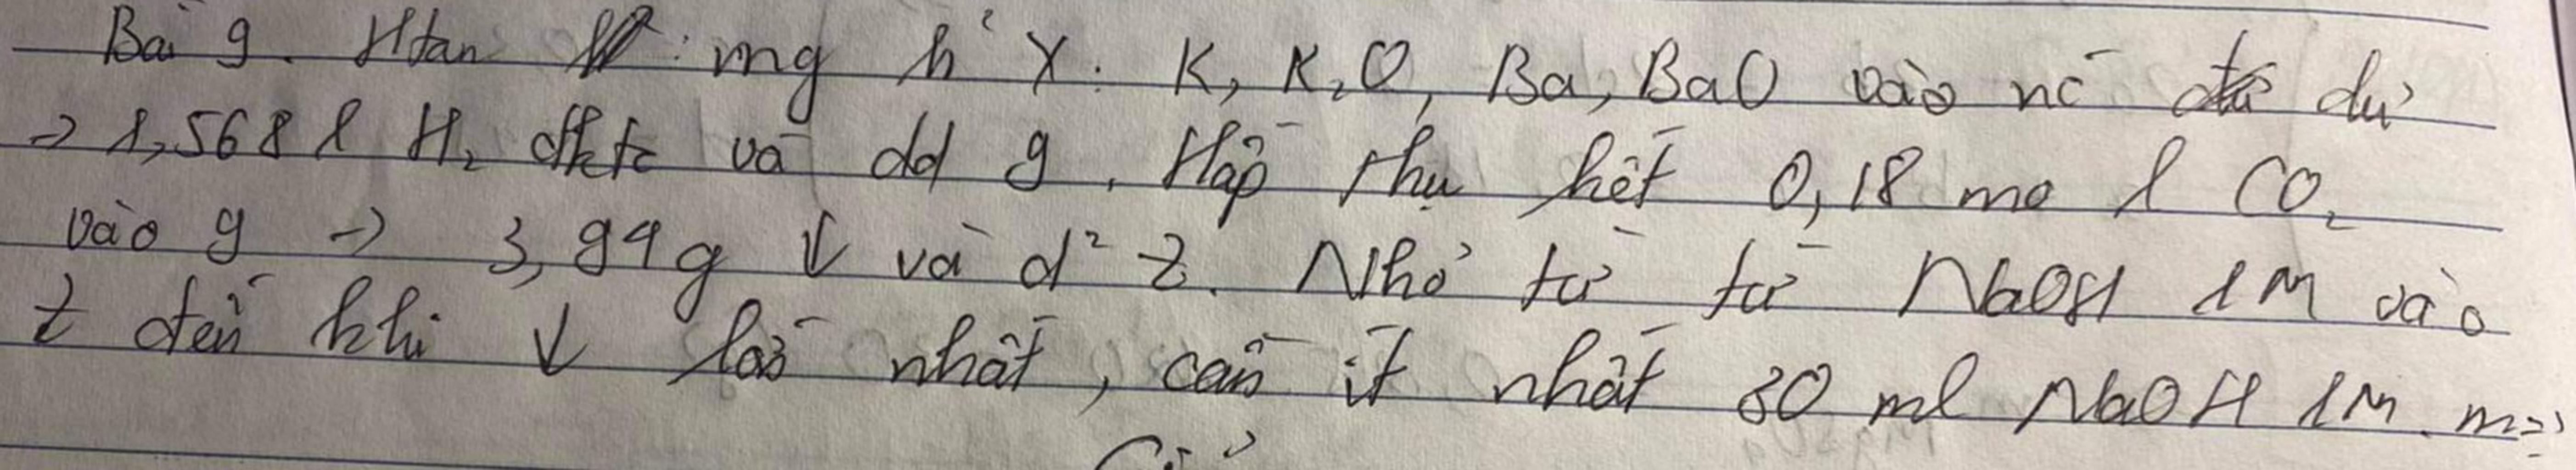 Bài 9. Htan : mg h² X: K, K₂O, Ba, BaO vào nc dư
→ 1,568 l H₂ đktc và dd y. Hấp thụ hết 0,18 mol CO₂
vào y → 3,94g ↓ và d² Z. Nhỏ từ từ NaOH 1M vào
Z đến khi ↓ lớn nhất, cần ít nhất 30 ml NaOH 1M. m=?